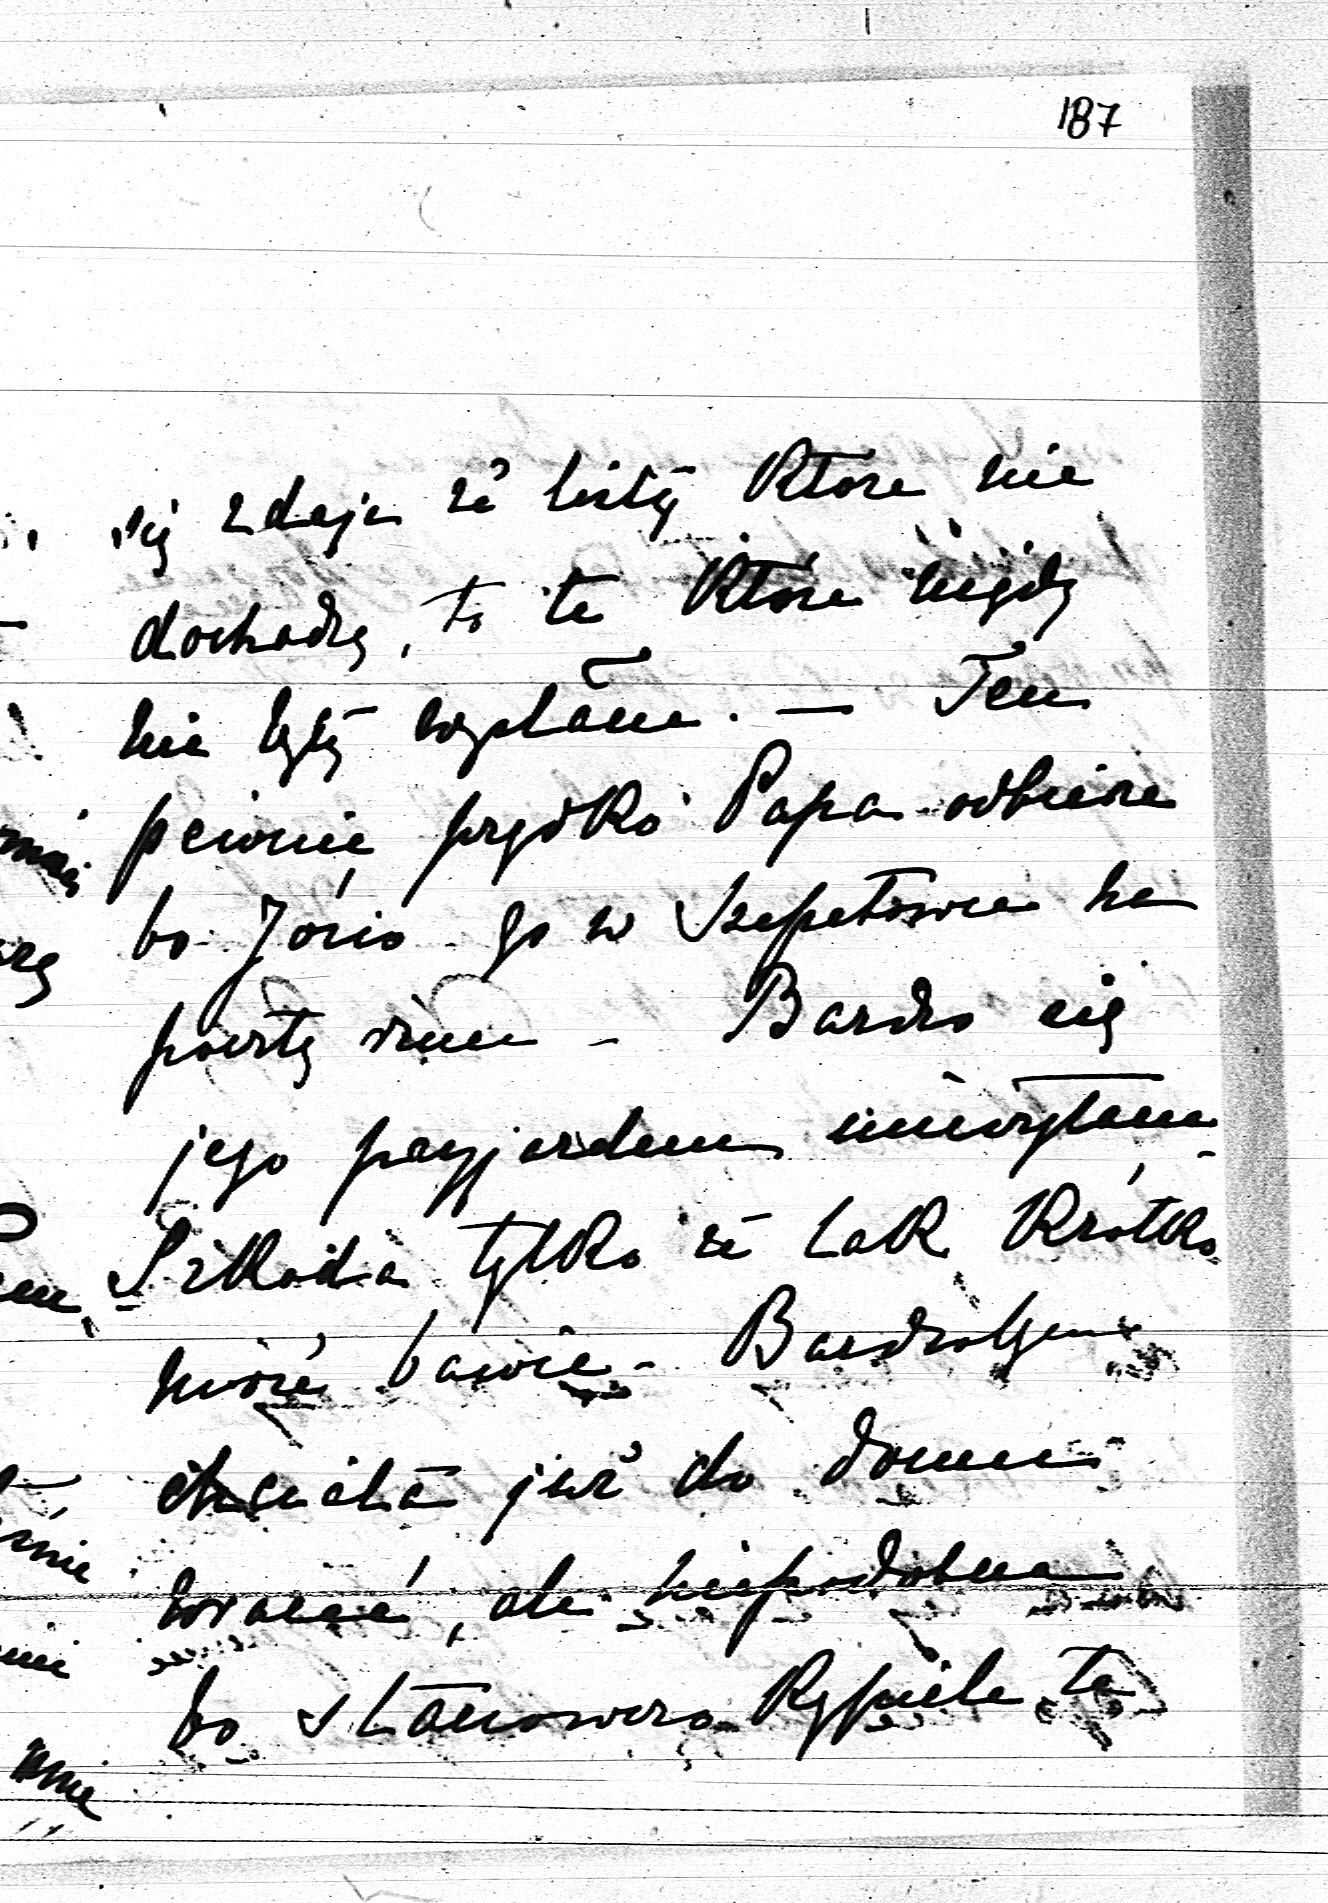 187
się zdaje że listy które nie
dochodzą, to te które nigdy
nie były wysłane. — Ten
pewnie prędko Papa odbierze
bo Józio go w Szepetowce na
pocztę rzuci – Bardzo się
jego przyjazdem ucieszyłam –
Szkoda tylko że tak krótko
może bawić – Bardzobym
chciała już do domu
wracać, ale niepodobna
bo stanowczo kąpiele te